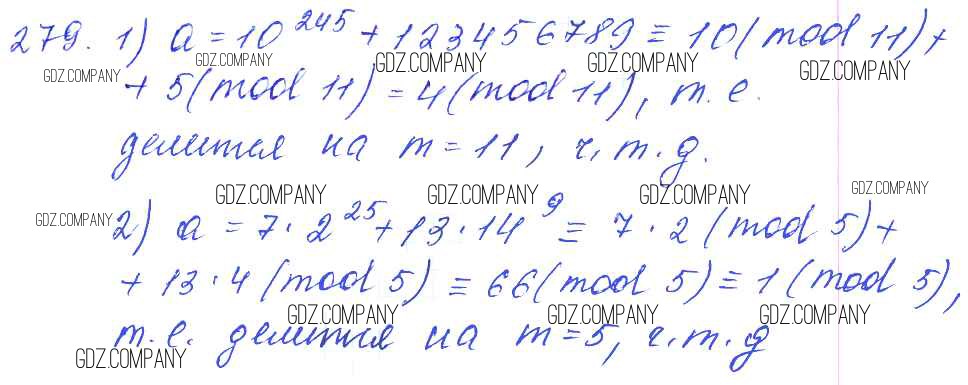 279. 1) a = 10^245 + 123456789 ≡ 10 (mod 11) +
GDZ.COMPANY GDZ.COMPANY GDZ.COMPANY GDZ.COMPANY GDZ.COMPANY
+ 5 (mod 11) = 4 (mod 11), т. е.
делится на m = 11, ч. т. д.
GDZ.COMPANY GDZ.COMPANY GDZ.COMPANY GDZ.COMPANY
GDZ.COMPANY
2) a = 7 · 2^25 + 13 · 14^9 ≡ 7 · 2 (mod 5) +
+ 13 · 4 (mod 5) ≡ 66 (mod 5) ≡ 1 (mod 5),
GDZ.COMPANY GDZ.COMPANY GDZ.COMPANY
т. е. делится на m = 5, ч. т. д
GDZ.COMPANY